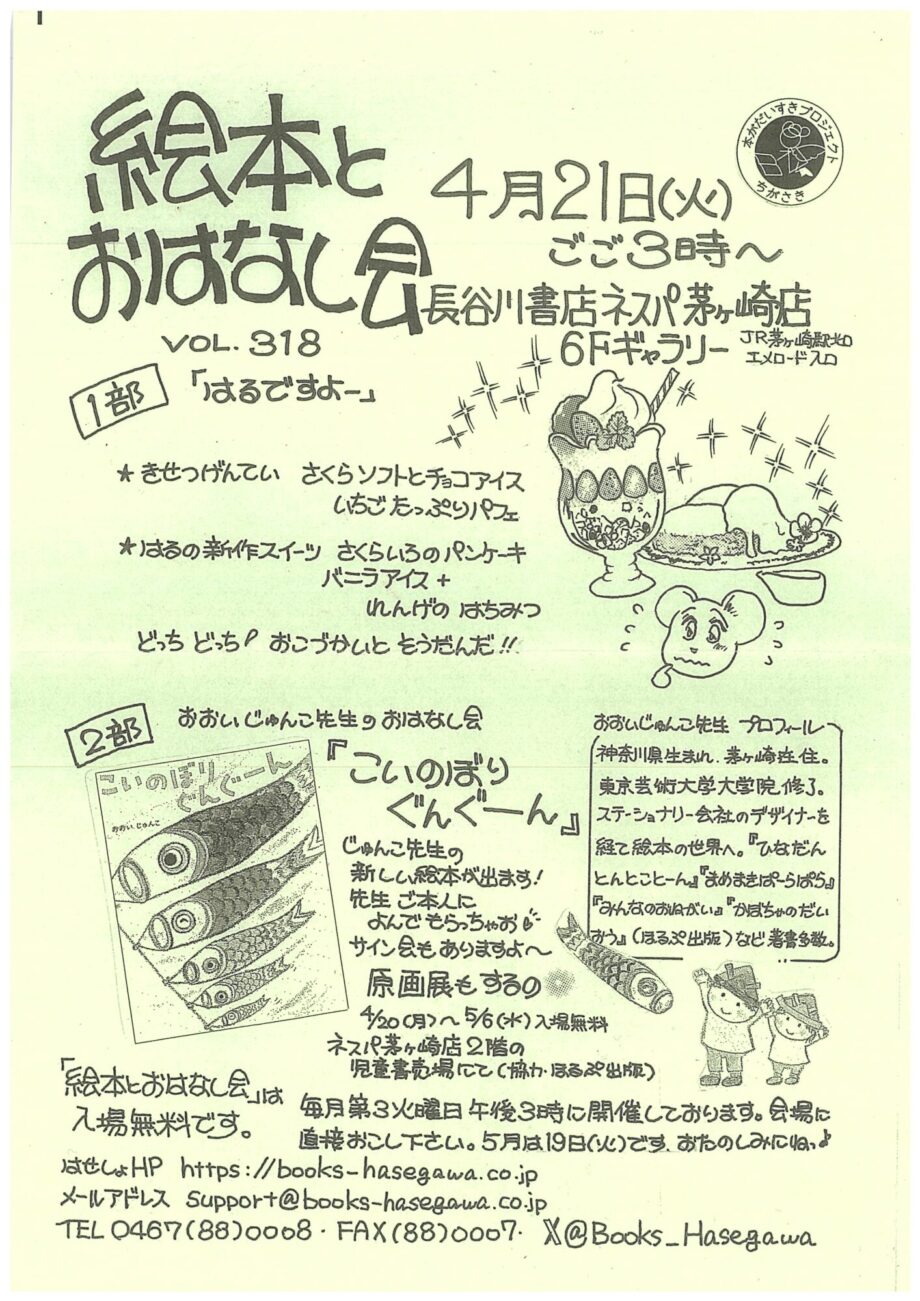 絵本と
おはなし会
VOL. 318
4月21日(火)
ごご3時〜
長谷川書店ネスパ茅ヶ崎店
6Fギャラリー
JR茅ヶ崎駅北口
エメロード入口
本がだいすきプロジェクト
ちがさき
1部 「はるですよー」
★きせつげんてい さくらソフトとチョコアイス
いちごたっぷりパフェ
★はるの新作スイーツ さくらいろのパンケーキ
バニラアイス+
れんげのはちみつ
どっちどっち! おこづかいとそうだんだ!!
2部 おおいじゅんこ先生のおはなし会
こいのぼり
ぐんぐーん
おおいじゅんこ
『こいのぼり
ぐんぐーん』
じゅんこ先生の
新しい絵本が出ます!
先生ご本人に
よんでもらっちゃお
サイン会もありますよ〜
原画展もするの
4/20(月)〜5/6(水)入場無料
ネスパ茅ヶ崎店2階の
児童書売場にて(協力・ほるぷ出版)
おおいじゅんこ先生 プロフィール
神奈川県生まれ、茅ヶ崎在住。
東京芸術大学大学院修了。
ステーショナリー会社のデザイナーを
経て絵本の世界へ。『ひなだん
とんとことーん』『まめまきぱーらぱら』
『みんなのおねがい』『かぼちゃのだい
おう』(ほるぷ出版)など著書多数。
「絵本とおはなし会」は
入場無料です。
毎月第3火曜日午後3時に開催しております。会場に
直接おこし下さい。5月は19日(火)です。おたのしみにねっ♪
はせしょHP https://books-hasegawa.co.jp
メールアドレス support@books-hasegawa.co.jp
TEL 0467(88)0008・FAX(88)0007・ X@Books_Hasegawa